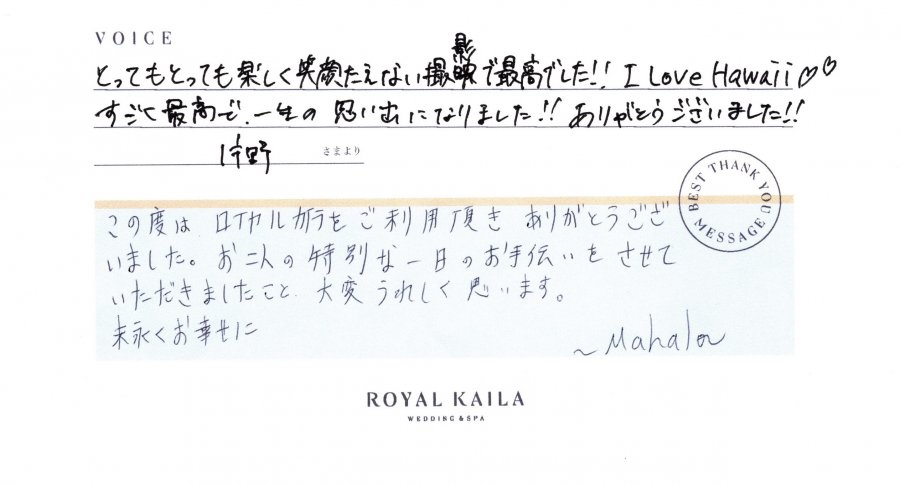 VOICE
とってもとっても楽しく笑顔たえない撮影で最高でした!! I Love Hawaii♡♡
すごく最高で、一生の思い出になりました!! ありがとうございました!!
伴野 さまより
BEST THANK YOU MESSAGE
この度は ロイヤルカイラをご利用頂き ありがとうござ
いました。お二人の特別な一日のお手伝いをさせて
いただきましたこと、大変うれしく思います。
末永くお幸せに
~Mahalo~
ROYAL KAILA
WEDDING & SPA